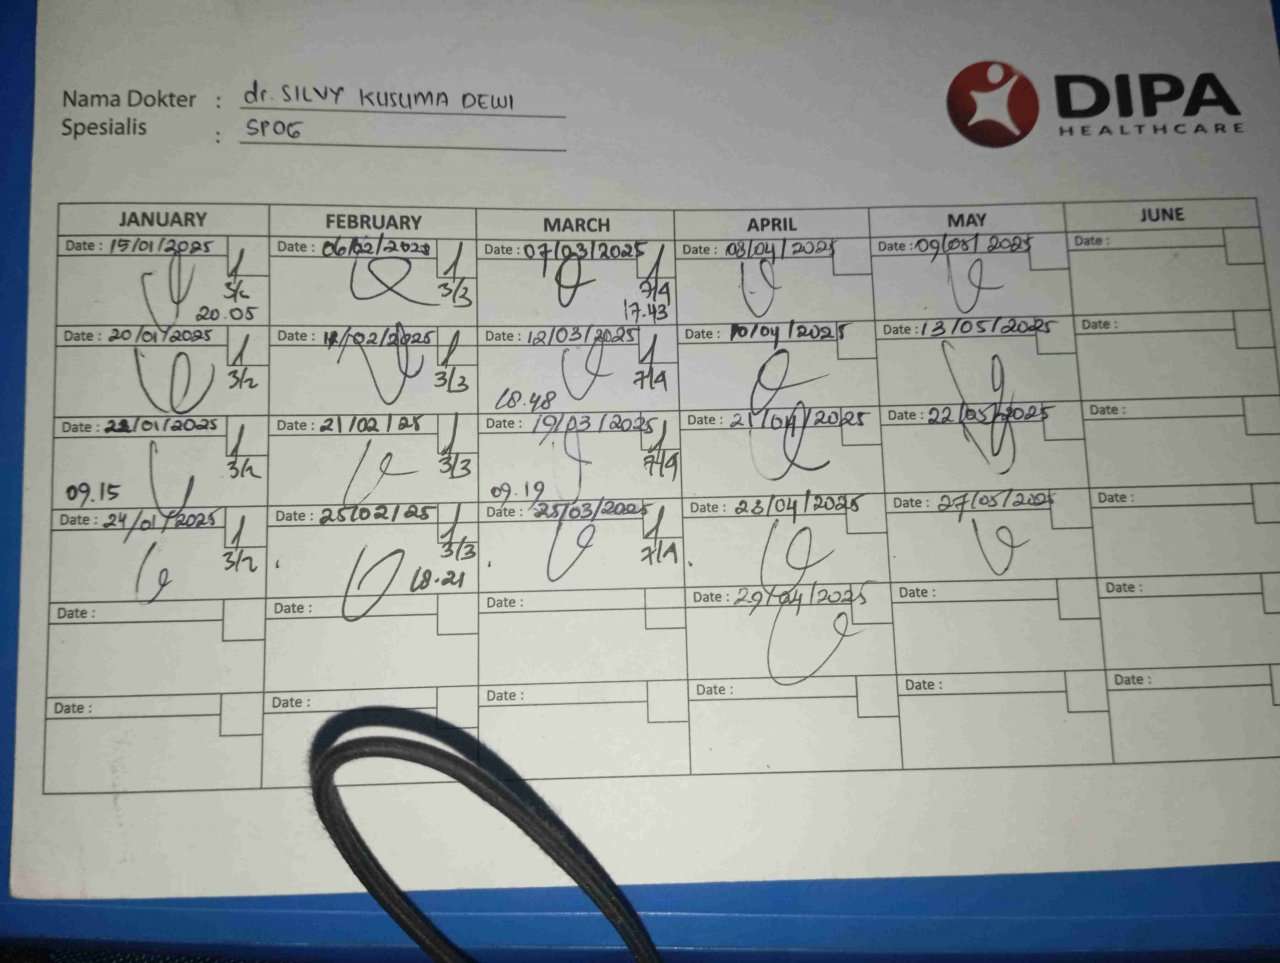 Nama Dokter : dr. SILVY KUSUMA DEWI
Spesialis : SPOG
DIPA
HEALTHCARE
JANUARY FEBRUARY MARCH APRIL MAY JUNE
Date : 15/01/2025 Date : 06/02/2025 Date : 07/03/2025 Date : 08/04/2025 Date : 09/05/2025 Date :
3/2 3/3 7/4
20.05 17.43
Date : 20/01/2025 Date : /02/2025 Date : 12/03/2025 Date : 10/04/2025 Date : 13/05/2025 Date :
3/2 3/3 7/4
18.48
Date : 22/01/2025 Date : 21/02/25 Date : 19/03/2025 Date : 21/04/2025 Date : 22/05/2025 Date :
3/2 3/3 7/4
09.15 09.19
Date : 24/01/2025 Date : 25/02/25 Date : 25/03/2025 Date : 23/04/2025 Date : 27/05/2025 Date :
3/2 3/3 7/4
18.21
Date : Date : Date : Date : 29/04/2025 Date : Date :
Date : Date : Date : Date : Date : Date :